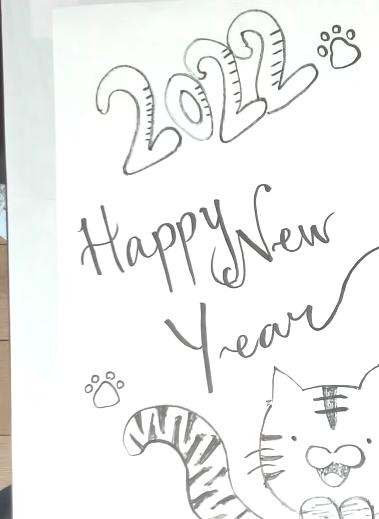 2022
Happy New
Year